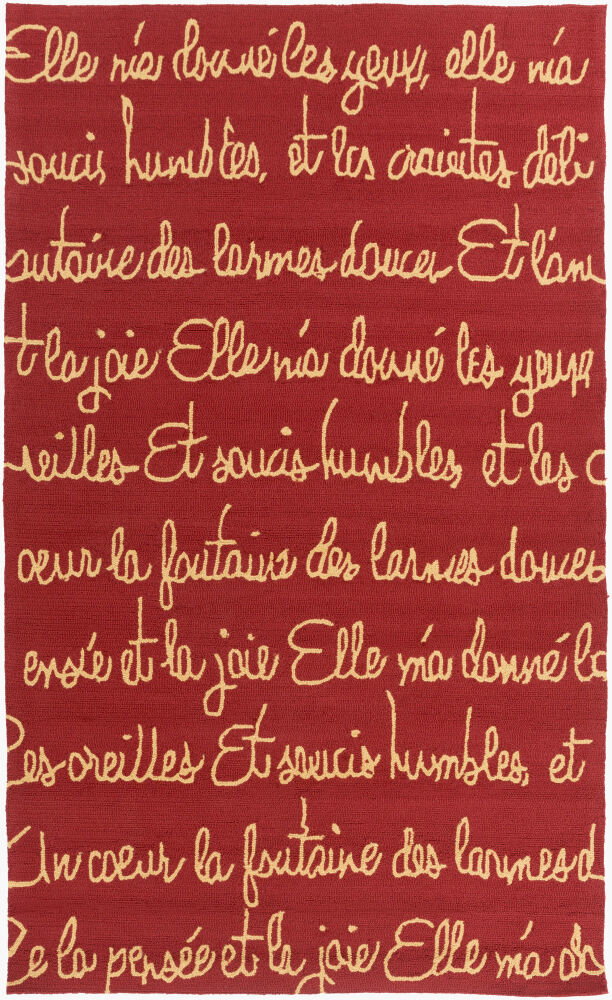 Elle m'a donné les yeux, elle m'a
soucis humbles, et les craintes déli
outaire des larmes douces Et l'am
t la joie Elle m'a donné les yeux
reilles Et soucis humbles, et les c
oeur la foutaine des larmes douces
ensée et la joie Elle m'a donné la
les oreilles Et soucis humbles, et
Un coeur la foutaine des larmes d
De la pensée et la joie Elle m'a do